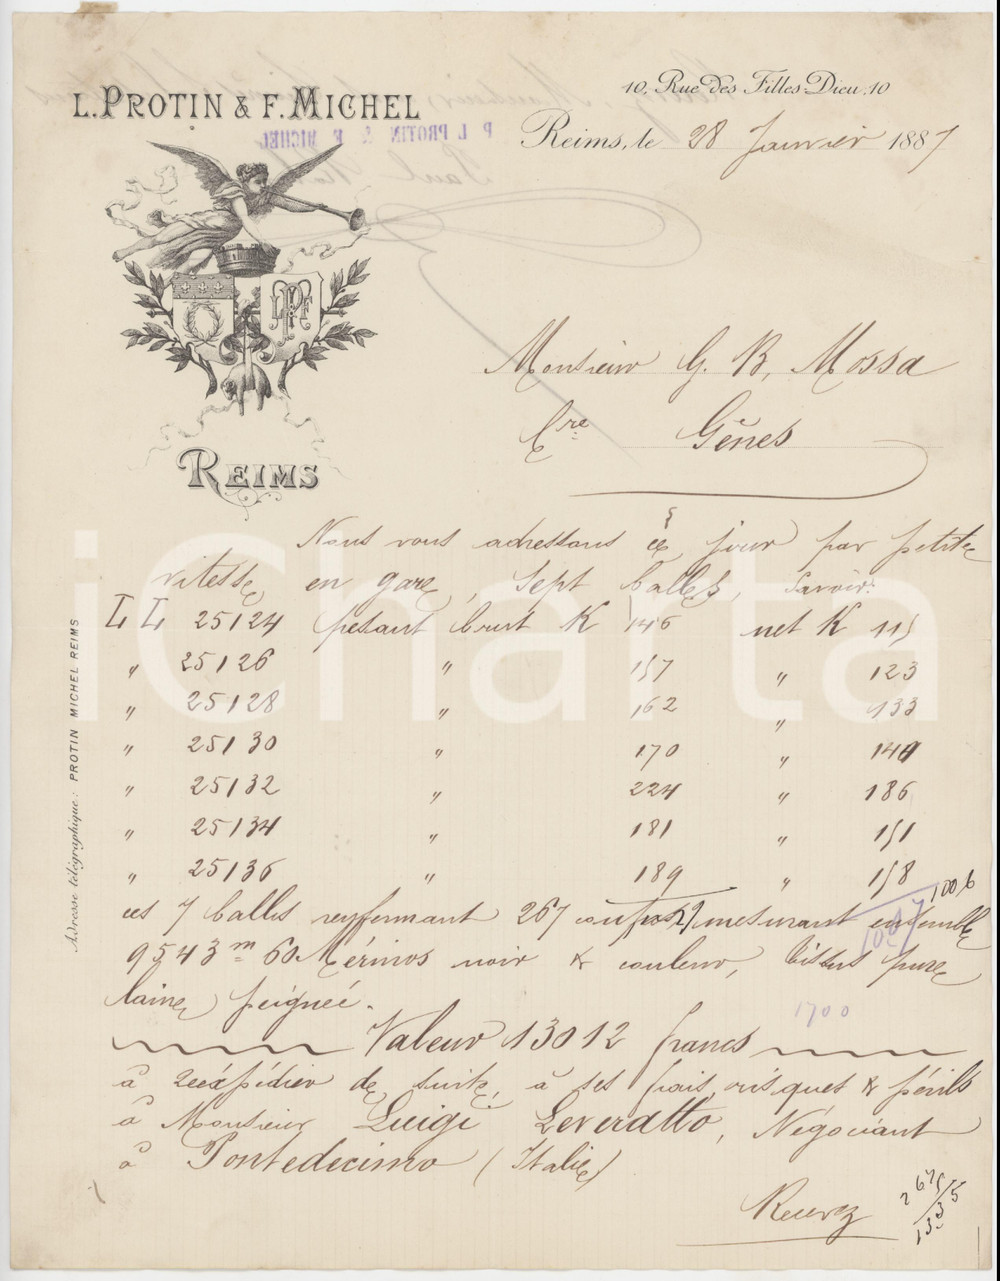 L. PROTIN & F. MICHEL
10, Rue des Filles Dieu, 10
Reims, le 28 Janvier 1887
P. L. PROTIN & F. MICHEL
LPF
REIMS
Monsieur G. B. Mossa
Cre Gênes
Nous vous adressons ce jour par petite
vitesse, en gare, sept balles, savoir:
LL 25124 pesant brut K 146 net K 115
" 25126 " 157 " 123
" 25128 " 162 " 133
" 25130 " 170 " 140
" 25132 " 224 " 186
" 25134 " 181 " 151
" 25136 " 189 " 158
1006
ces 7 balles renfermant 267 coupes mesurant ensemble
1007
9543m 60 Mérinos noir & couleur, tissus pure
laine peignée.
1700
Valeur 13012 francs
à réexpédier de suite, à ses frais, risques & périls
à Monsieur Luigi Leveratto, Négociant
à Pontedecimo (Italie)
Recevez
267
1335
Adresse télégraphique: PROTIN MICHEL REIMS
iCharta